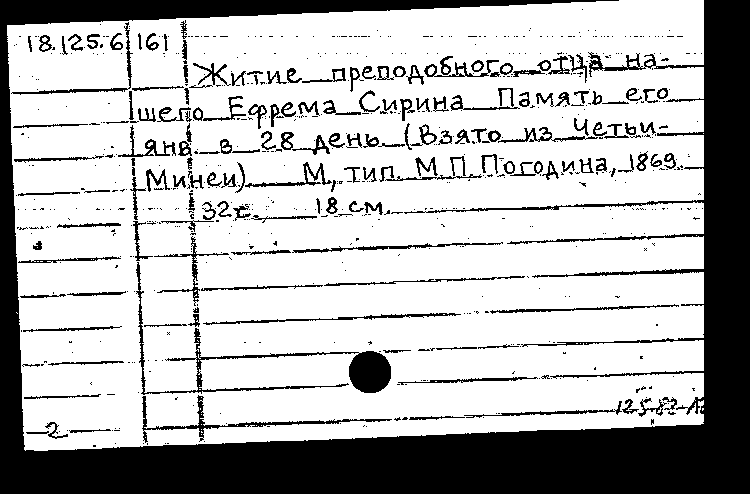 18.125.6 161
Житие преподобного отца на-
шего Ефрема Сирина Память его
янв. в 28 день. (Взято из Четьи-
Минеи) М., тип. М.П. Погодина, 1869.
32 с. 18 см.
2